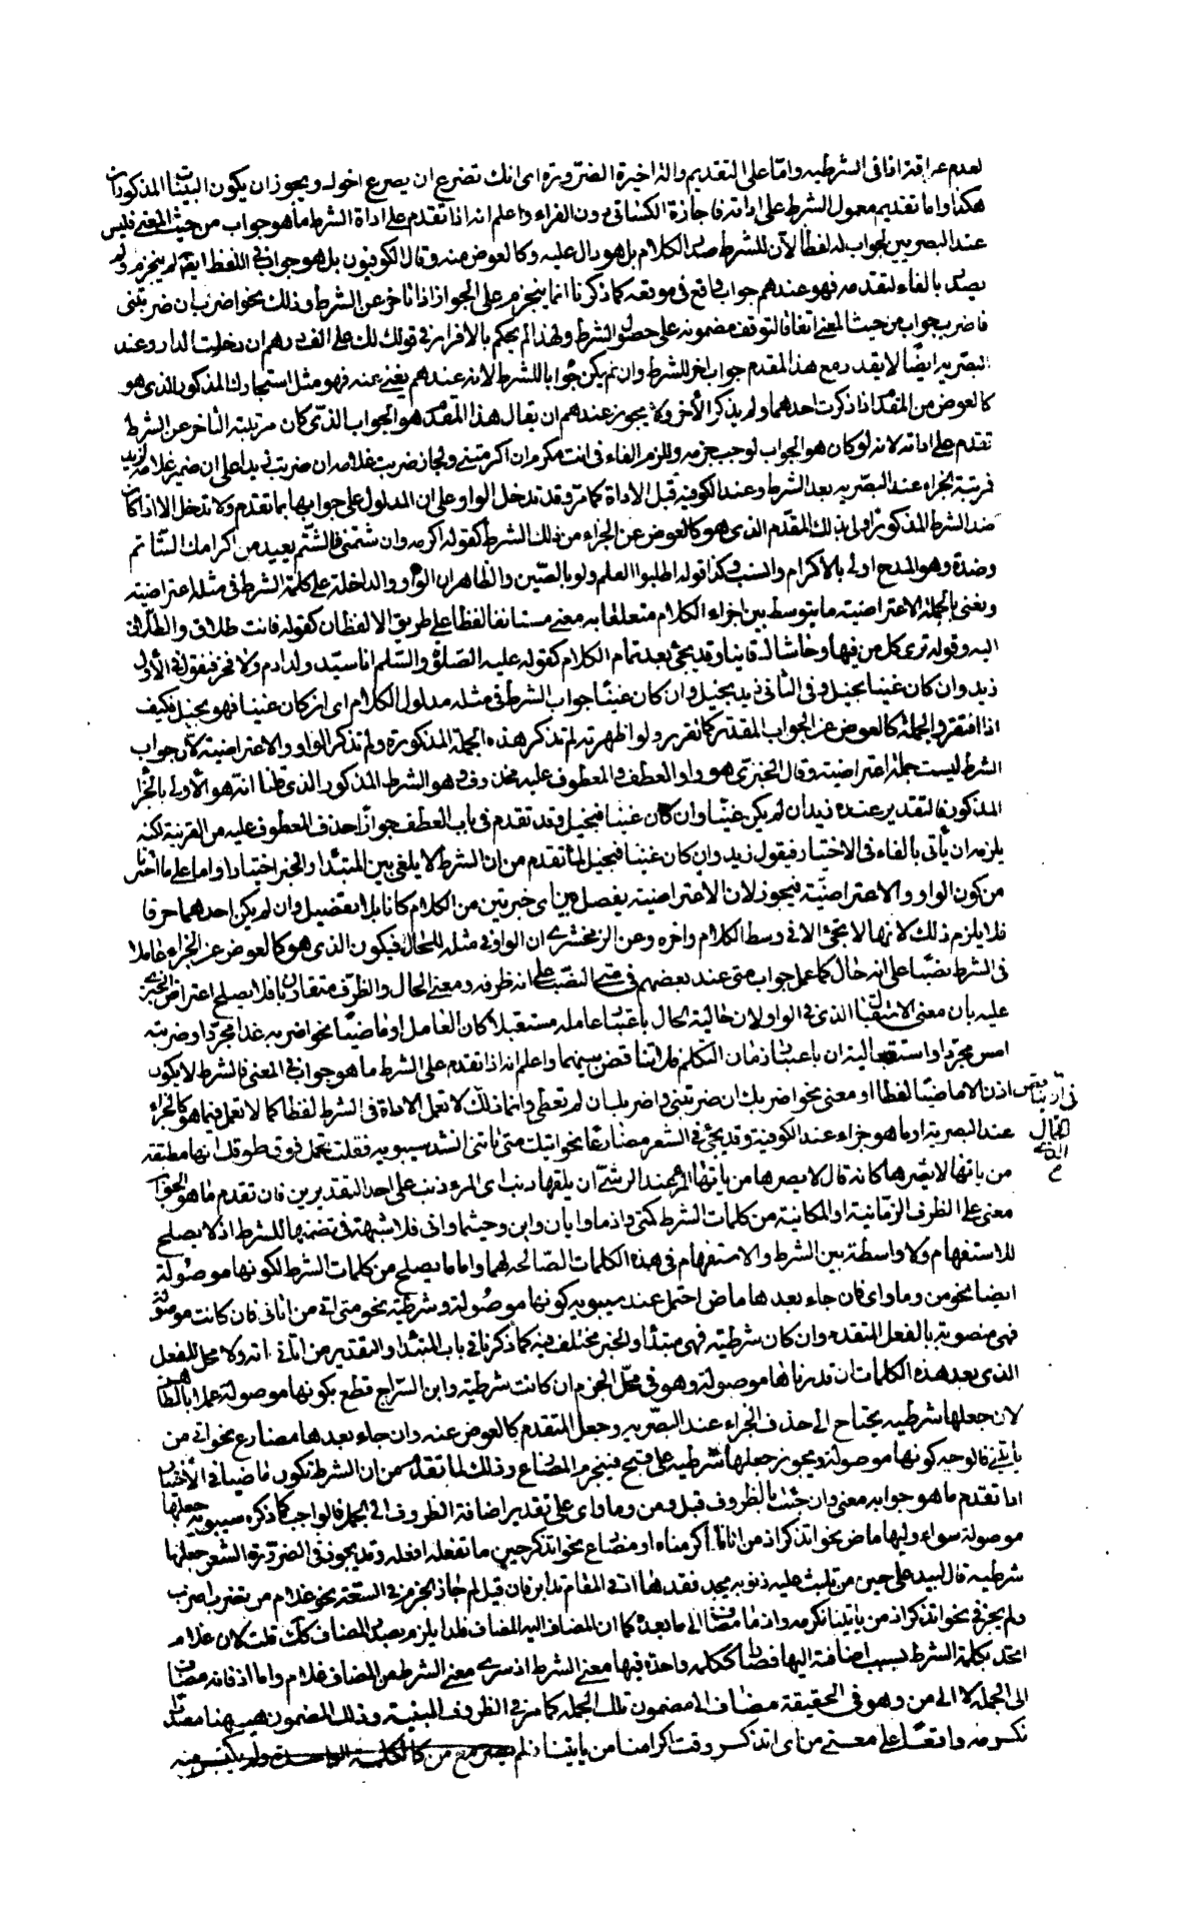 لعدم عراقة اذا في الشرطيه واما على التقديم والتاخير للضرورة اى انك تصرع ان يصرع اخوك ويجوز ان يكون البيتان المذكوران
هكذا واما تقديم معمول الشرط على اداته فاجازة الكسائى دون الفراء واعلم انه اذا تقدم على اداة الشرط ما هو جواب من حيث المعنى فليس
عند البصريين بجواب له لفظا لان للشرط صدر الكلام بل هو دال عليه وكالعوض منه وقال الكوفيون بل هو جواب في اللفظ ايضا لم ينجزم ولم
يصدر بالفاء لتقدمه فهو عندهم جواب واقع في موقعه كما ذكرنا انما ينجزم على الجواز اذا تاخر عن الشرط وذلك نحو اضرب ان ضربتنى
فاضرب جواب من حيث المعنى اتفاقا لتوقف مضمونه على حصول الشرط ولهذا لم يحكم بالاقرار في قولك لك على الف درهم ان دخلت الدار وعند
البصريه ايضا لا يقدر مع هذا المقدم جواب اخر للشرط وان لم يكن جوابا للشرط لانه عندهم يغنى عنه فهو مثل استجارك المذكور الذى هو
كالعوض من المقدر اذا ذكرت احدهما ولم يذكر الاخر ولا يجوز عندهم ان يقال هذا المقدم هو الجواب الذى كان مرتبته التاخر عن الشرط
تقدم على اداته لانه لو كان هو الجواب لوجب جزمه وللزم الفاء في انت مكرم ان اكرمتنى ولجاز ضربت غلامه ان ضربت زيدا على ان ضمير غلامه لزيد
فرتبة الجزاء عند البصريه بعد الشرط وعند الكوفيه قبل الاداة كما مر وقد تدخل الواو على ان المدلول على جوابها بما تقدم ولا تدخل الا اذا كان
ضد الشرط المذكور اولى بذلك المقدم الذى هو كالعوض عن الجزاء من ذلك الشرط كقوله اكرمه وان شتمنى فالشتم بعيد من اكرامك الشاتم
وضده وهو المدح اولى بالاكرام والسب وكذا قوله اطلبوا العلم ولو بالصين والظاهر ان الواو الداخلة على كلمة الشرط في مثله اعتراضيته
ونعنى بالجملة الاعتراضيته ما يتوسط بين اجزاء الكلام متعلقا به معنى مستانفا لفظا على طريق الالتفات كقوله فانت طلاق والطلاق
اليه وقوله ترى كل من فيها وحاشاك فانيا وقد يجئ بعد تمام الكلام كقوله عليه الصلوة والسلم انا سيد ولد ادم ولا فخر فتقول في الاول
زيد وان كان غنيا بخيل وفى الثانى زيد بخيل وان كان غنيا جواب الشرط في مثله مدلول الكلام اى ان كان غنيا فهو بخيل فكيف
اذا افتقر والجملة كالعوض عن الجواب المقدر كما تقرر ولو اظهرته لم تذكر هذه الجملة المذكورة ولم تذكر الواو والاعتراضيته لان جواب
الشرط ليست جملة اعتراضيته وقال الجنزى هو واو العطف والمعطوف عليه محذوف وهو الشرط المذكور الذى قلنا انه هو الاولى بالجزاء
المذكور فالتقدير عنده زيد ان لم يكن غنيا وان كان غنيا فبخيل وقد تقدم في باب العطف جواز حذف المعطوف عليه من القرينة لكنه
يلزمه ان يأتى بالفاء في الاختيار فيقول زيد وان كان غنيا فبخيل لما تقدم من ان الشرط لا يلغى بين المبتدا والخبر اختيارا واما على ما اخترنا
من كون الواو والاعتراضيته فيجوز لان الاعتراضيته يفصل بين اى جزئين من الكلام كانا بلا تفصيل وان لم يكن احدهما حرفا
فلا يلزم ذلك لانها لا تجئ الا في وسط الكلام واخره وعن الزمخشرى ان الواو في مثله للحال فيكون الذى هو كالعوض عن الجزاء عاملا
فى الشرط نصبا على انه حال كما عمل جواب متى عند بعضهم في متى النصب على انه ظرفه ومعنى الحال والظرف متقاربان فلا يصلح اعتراض الجنزى
عليه بان معنى الاستقبال الذى في ان لحالية الحال باعتبار عامله مستقبلا كان العامل او ماضيا نحو اضربه غدا مجردا وضربته
امس مجردا واستقبالية ان باعتبار زمان التكلم فلا تناقض بينهما واعلم انه اذا تقدم على الشرط ما هو جواب في المعنى فالشرط لا يكون
اذن الا ماضيا لفظا او معنى نحو اضربك ان ضربتنى واضربك ان لم تعطنى وانما ذلك لا تعمل الاداة في الشرط لفظا كما لا تعمل فيما هو كالجزاء
عند البصرية او ما هو جزاء عند الكوفية وقد يجئ في الشعر مضارعا نحو اتيك متى تاتنى انشد سيبويه فقلت تحمل فوق طوقك انها مطبقة
من ياتها لا يضيرها كانه قال لا يضيرها من ياتها المرء عند الرشى ان يلقها ذيب اى المرء ذيب على احد التقديرين فان تقدم ما هو الجواب
معنى على الظرف الزمانية او المكانية من كلمات الشرط كمتى واذ ما وايان واين وحيثما وانى فلا شبهة في تضمنها للشرط اذ لا يصلح
للاستفهام ولا واسطة بين الشرط والاستفهام في هذه الكلمات الصالحة لهما واما ما يصلح من كلمات الشرط لكونها موصولة
ايضا نحو من وما واى فان جاء بعدها ماض احتمل عند سيبويه كونها موصولة وشرطية نحو متى اتى من اتانى فان كانت موصولة
فهى منصوبة بالفعل المتقدم وان كان شرطيته فهى مبتدا والخبر مختلف فيه كما ذكرنا في باب المبتدا والتقدير من اتانى اته ولا محل للفعل
الذى بعد هذه الكلمات ان قدرناها موصولة وهو في محل الجزم ان كانت شرطية وابن السراج قطع بكونها موصولة عملا بالظاهر
لان جعلها شرطيه يحتاج الى حذف الجزاء عند البصريه وجعل المتقدم كالعوض عنه وان جاء بعدها مضارع نحو اتى من
ياتينى فالوجه كونها موصولة ويجوز جعلها شرطيه على قبح فينجزم المضارع وذلك لما تقدم من ان الشرط تكون ماضيا في الاختيار
اما تقدم ما هو جوابه معنى وان جئت بالظروف قبل ومن وما واى على تقدير اضافة الظروف الى الجمل فالواجب كما ذكره سيبويه جعلها
موصولة سواء وليها ماض نحو اتذكر اذ من اتانا اكرمناه او مضارع نحو اتذكر حين ما تفعله افعله وقد يجوز في الضرورة الشعر جعلها
شرطية قال لبيد على حين من تلبث عليه ذنوبه يجد فقدها اذ في المقام تدابر فان قيل لم جاز الجزم في السعة نحو غلام من تضرب اضرب
ولم يجز في نحو اتذكر اذ من ياتينا نكرمه واذ مضاف الى ما بعده كما ان المضاف اليه المضاف فلذا يلزم تصدر المضاف كك قلت لان غلام
اتحد بكلمة الشرط بسبب اضافته اليها فصارا ككلمه واحدة فيها معنى الشرط اذ سرى معنى الشرط من المضاف غلام واما اذ فانه مضاف
الى الجملة لا الى من وهو في الحقيقة مضاف الى مضمون تلك الجملة كما مر في الظروف المبنية وذلك المضمون هيهنا مصدر
نكرمه واقعا على معنى من اى اتذكر وقت اكرامنا من ياتينا فلم يصر مع من كالكلمة الواحدة ولم يكتسب منه